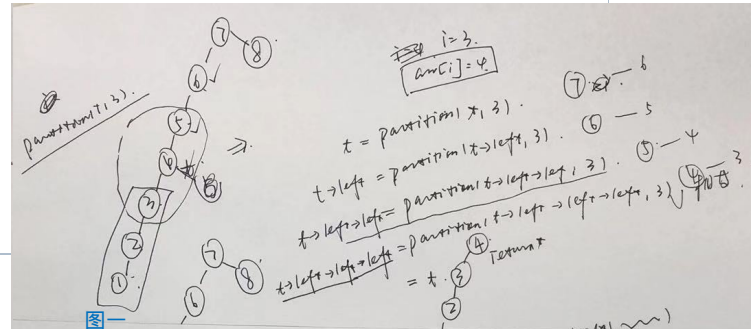 partition(t, 3).
7
8
6
5
4
3
2
1
图一
7
8
6
i=3.
arr[i]=4.
t = partition(t, 3).
7 — 6
t→left = partition(t→left, 3).
6 — 5
t→left→left = partition(t→left→left, 3).
5 — 4
t→left→left→left = partition(t→left→left→left, 3)
4 — 3
= t.
return t
4
3
2